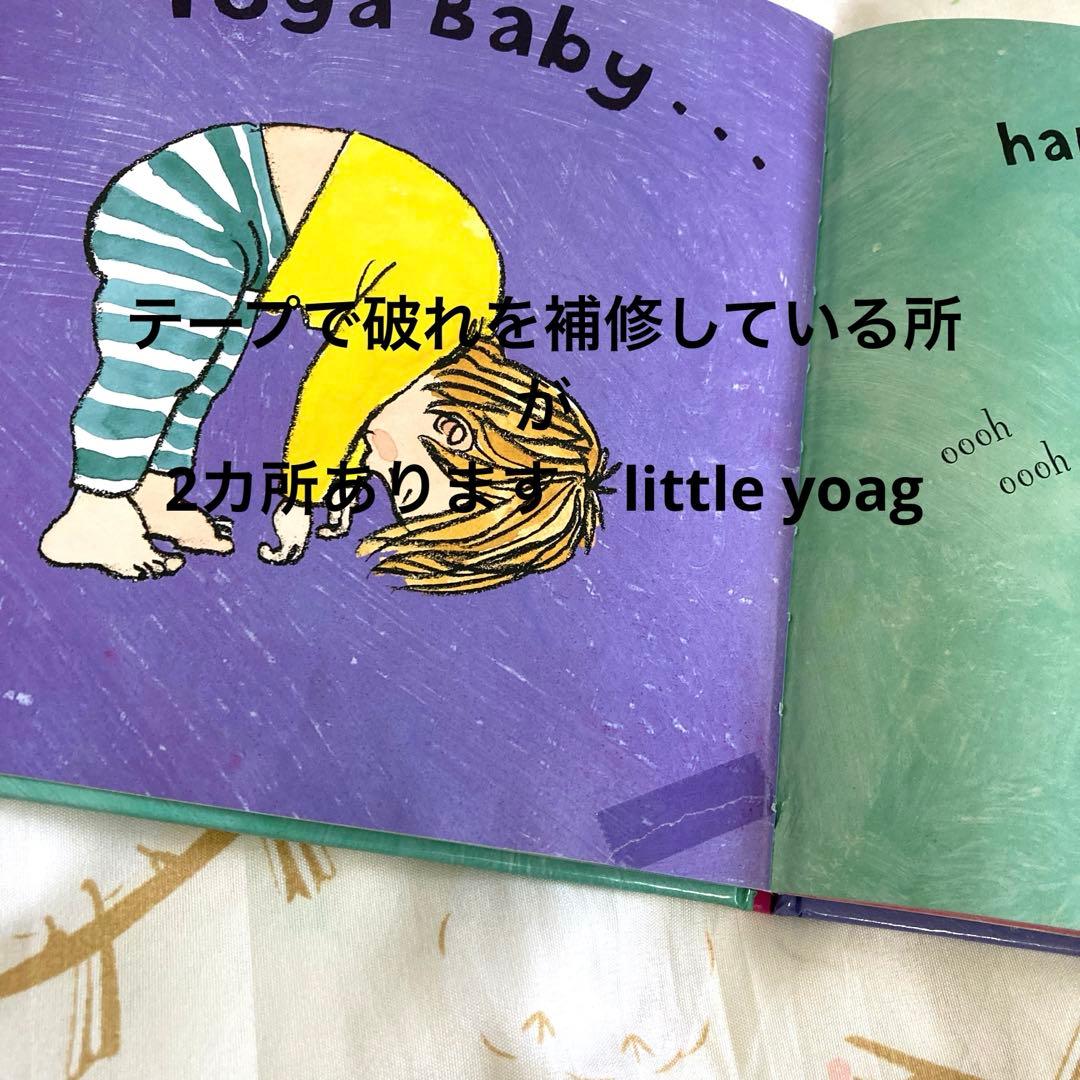 Yoga Baby...
テープで破れを補修している所
が
2カ所あります　little yoag
oooh
oooh